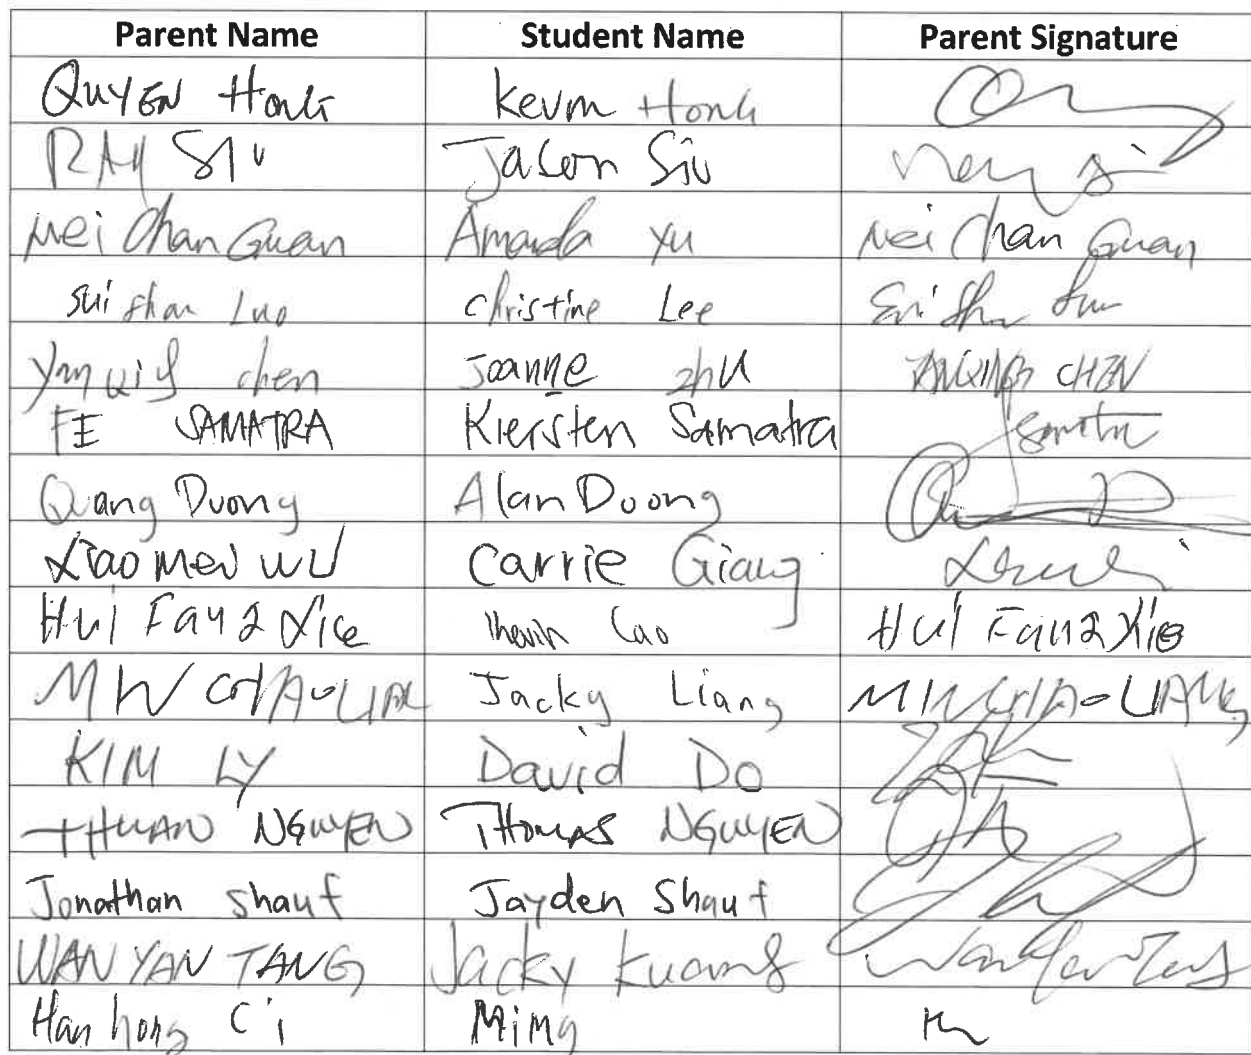 Parent Name Student Name Parent Signature
QUYEN HONG Kevin Hong
RAY SIU Jason Siu
Mei Chan Guan Amanda Yu Mei Chan Guan
Sui Shan Luo Christine Lee
Yan Qing chen Joanne zhu YANQING CHEN
FE SAMATRA Kiersten Samatra Samatra
Quang Duong Alan Duong
Xiao Mei WU Carrie Giang
Hui Fang Xie Cao Hui Fang Xie
Jacky Liang MIN CHAO LIANG
KIM LY David Do
THUAN NGUYEN THOMAS NGUYEN
Jonathan Shauf Jayden Shauf
WAN YAN TANG Jacky Kuang Wan Yan Tang
Han hong Ci Ming